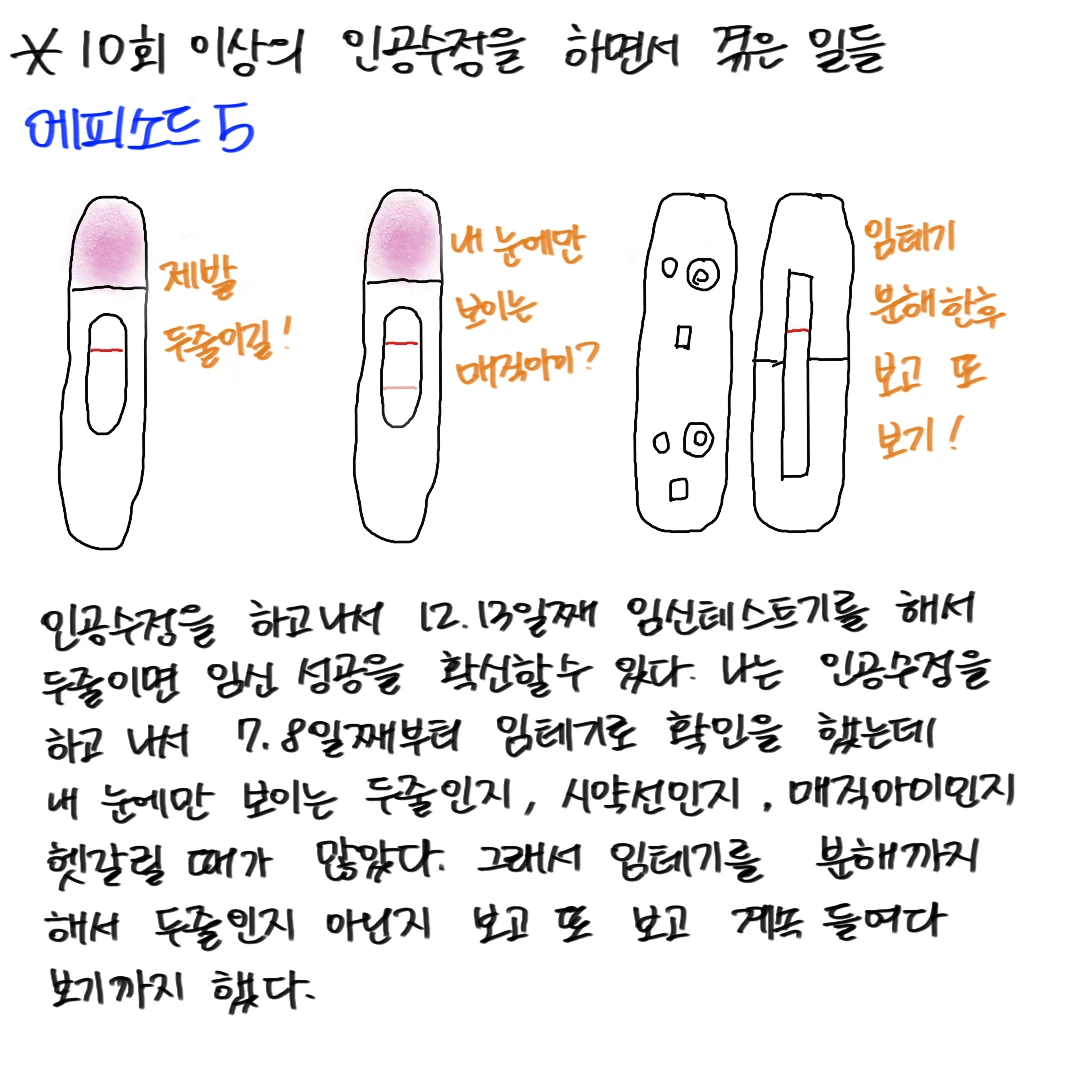 * 10회 이상의 인공수정을 하면서 겪은 일들
에피소드 5
제발
두줄이길!
내 눈에만
보이는
매직아이?
임테기
분해한후
보고 또
보기!
인공수정을 하고나서 12.13일째 임신테스트기를 해서
두줄이면 임신 성공을 확신할수 있다. 나는 인공수정을
하고 나서 7.8일째부터 임테기로 확인을 했는데
내 눈에만 보이는 두줄인지, 시약선인지, 매직아이인지
헷갈릴 때가 많았다. 그래서 임테기를 분해까지
해서 두줄인지 아닌지 보고 또 보고 계속 들여다
보기까지 했다.